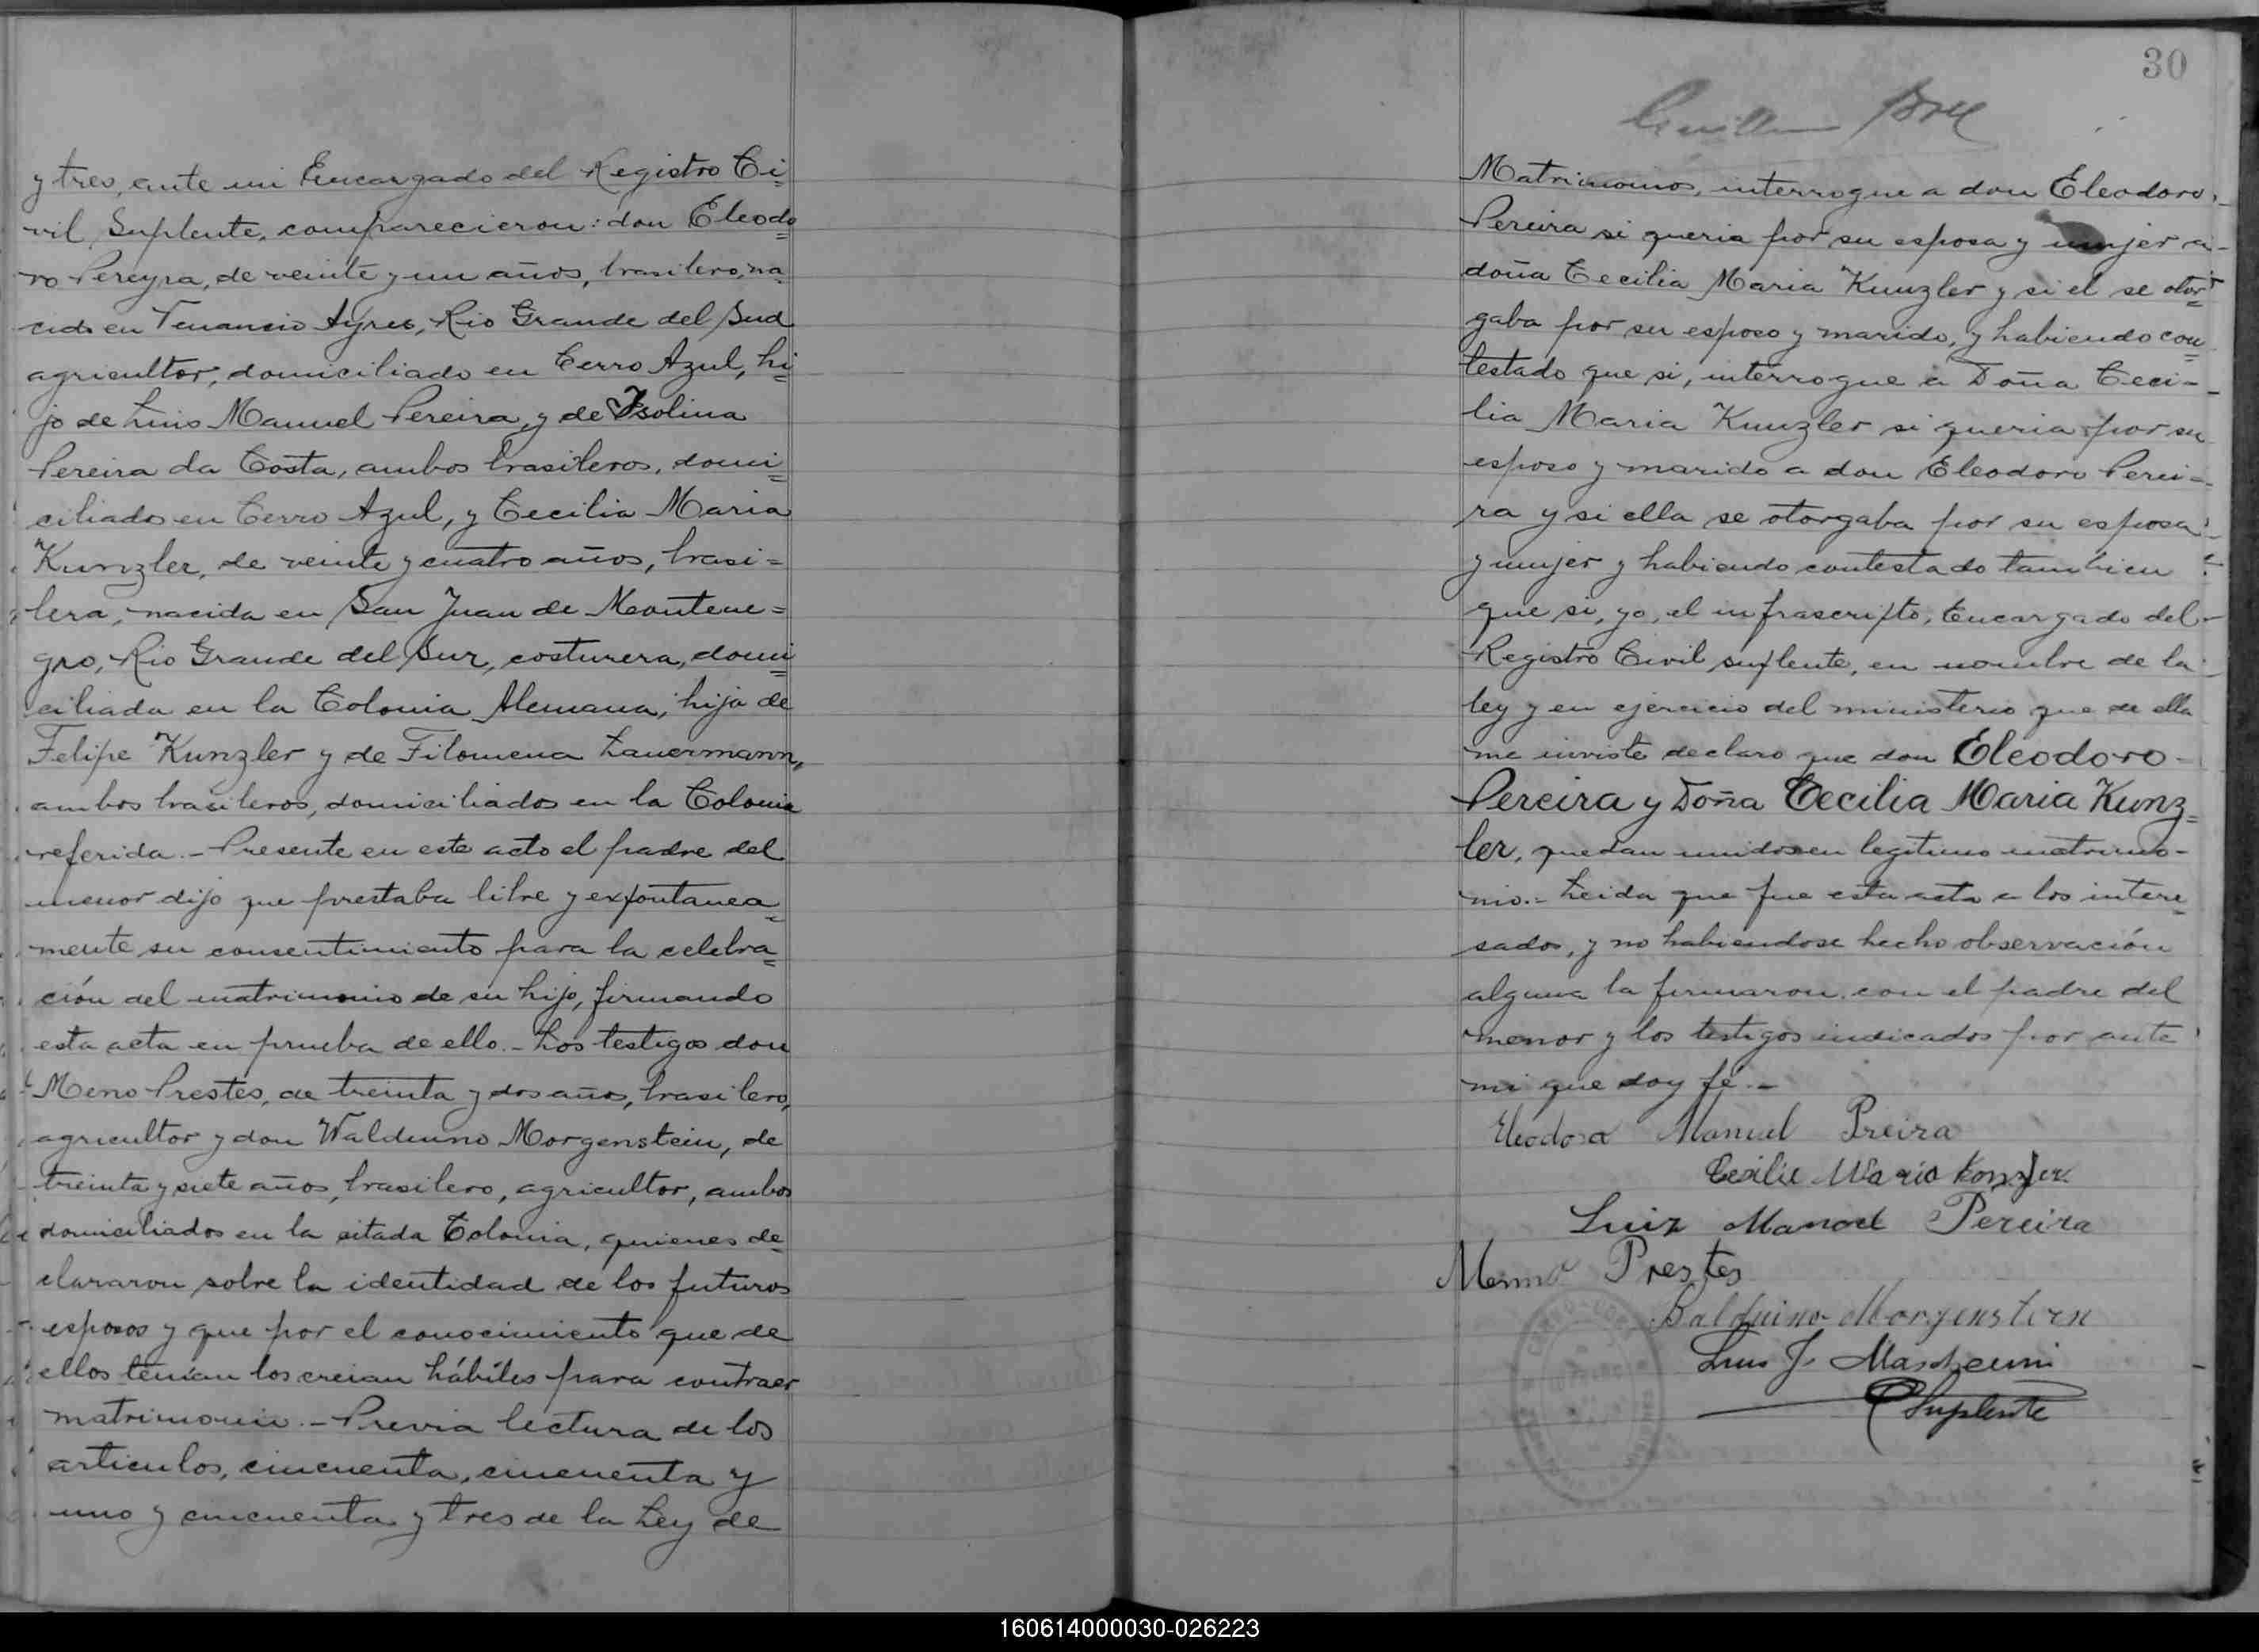 y tres, ante mi Encargado del Registro Ci=
vil Suplente, comparecieron: don Eleodo=
ro Pereyra, de veinte y un años, brasilero, na=
cido en Venancio Ayres, Rio Grande del Sud
agricultor, domiciliado en Cerro Azul, hi=
jo de Luis Manuel Pereira, y de Isolina
Pereira da Costa, ambos brasileros, domi=
ciliados en Cerro Azul, y Cecilia Maria
Kunzler, de veinte y cuatro años, brasi=
lera, nacida en San Juan de Montene=
gro, Rio Grande del Sur, costurera, domi=
ciliada en la Colonia Alemana, hija de
Felipe Kunzler y de Filomena Lauermann,
ambos brasileros, domiciliados en la Colonia
referida.- Presente en este acto el padre del
menor dijo que prestaba libre y expontanea=
mente su consentimiento para la celebra=
ción del matrimonio de su hijo, firmando
esta acta en prueba de ello.- Los testigos don
Meno Prestes, de treinta y dos años, brasilero,
agricultor y don Walduino Morgenstein, de
treinta y siete años, brasilero, agricultor, ambos
domiciliados en la citada Colonia, quienes de=
clararon sobre la identidad de los futuros
esposos y que por el conocimiento que de
ellos tenían los creian hábiles para contraer
matrimonio.- Previa lectura de los
articulos, cincuenta, cincuenta y
uno y cincuenta y tres de la Ley de
30
Matrimonios, interrogue a don Eleodoro
Pereira si queria por su esposa y mujer a-
doña Cecilia Maria Kunzler y si el se otor=
gaba por su esposo y marido, y habiendo con=
testado que si, interrogue a Doña Ceci-
lia Maria Kunzler si queria por su
esposo y marido a don Eleodoro Perei=
ra y si ella se otorgaba por su esposa
y mujer y habiendo contestado tambien
que si, yo, el infrascripto, Encargado del
Registro Civil suplente, en nombre de la
ley y en ejercicio del ministerio que de ella
me inviste declaro que don Eleodoro
Pereira y Doña Cecilia Maria Kunz=
ler, quedan unidos en legitimo matrimo-
nio.- Leida que fue esta acta a los intere=
sados, y no habiendose hecho observación
alguna la firmaron con el padre del
menor y los testigos indicados por ante
mi que doy fé.-
Manuel Preira
Cecilie Maria Konzler
Luiz Manoel Pereira
Menno Prestes
Balduino Morgenstern
Luis J.
Suplente
160614000030-026223